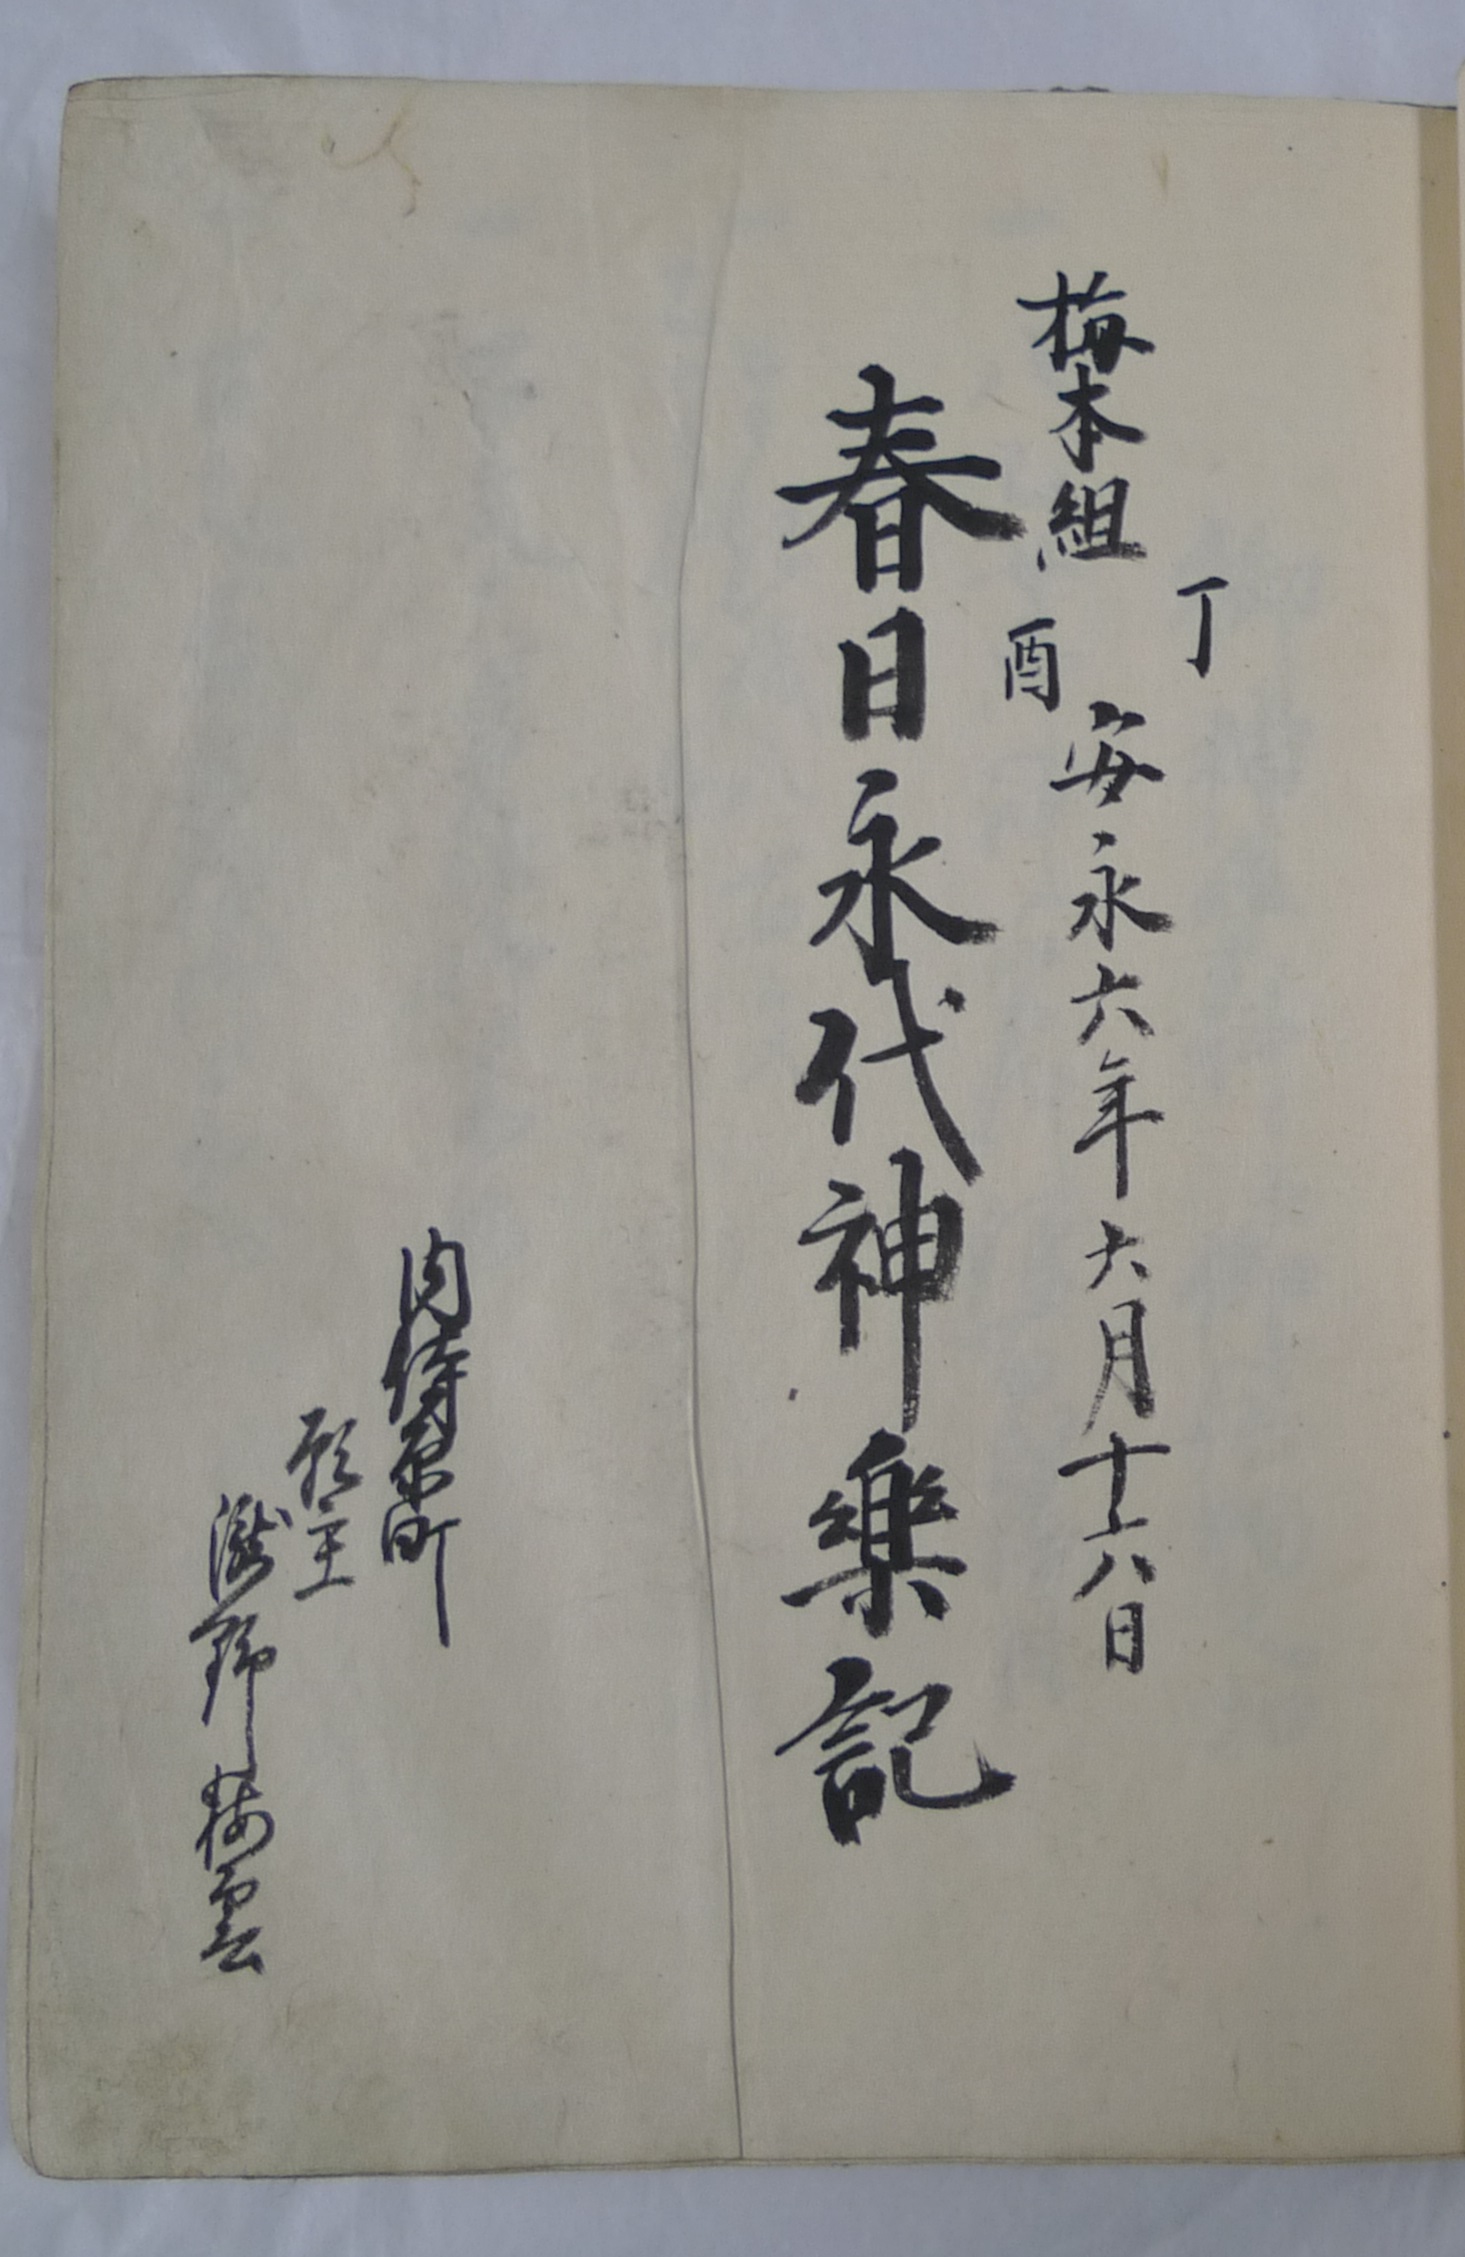 梅本組
丁
酉
安永六年六月十六日
春日永代神樂記
内侍原町
願主
瀧野梅雲